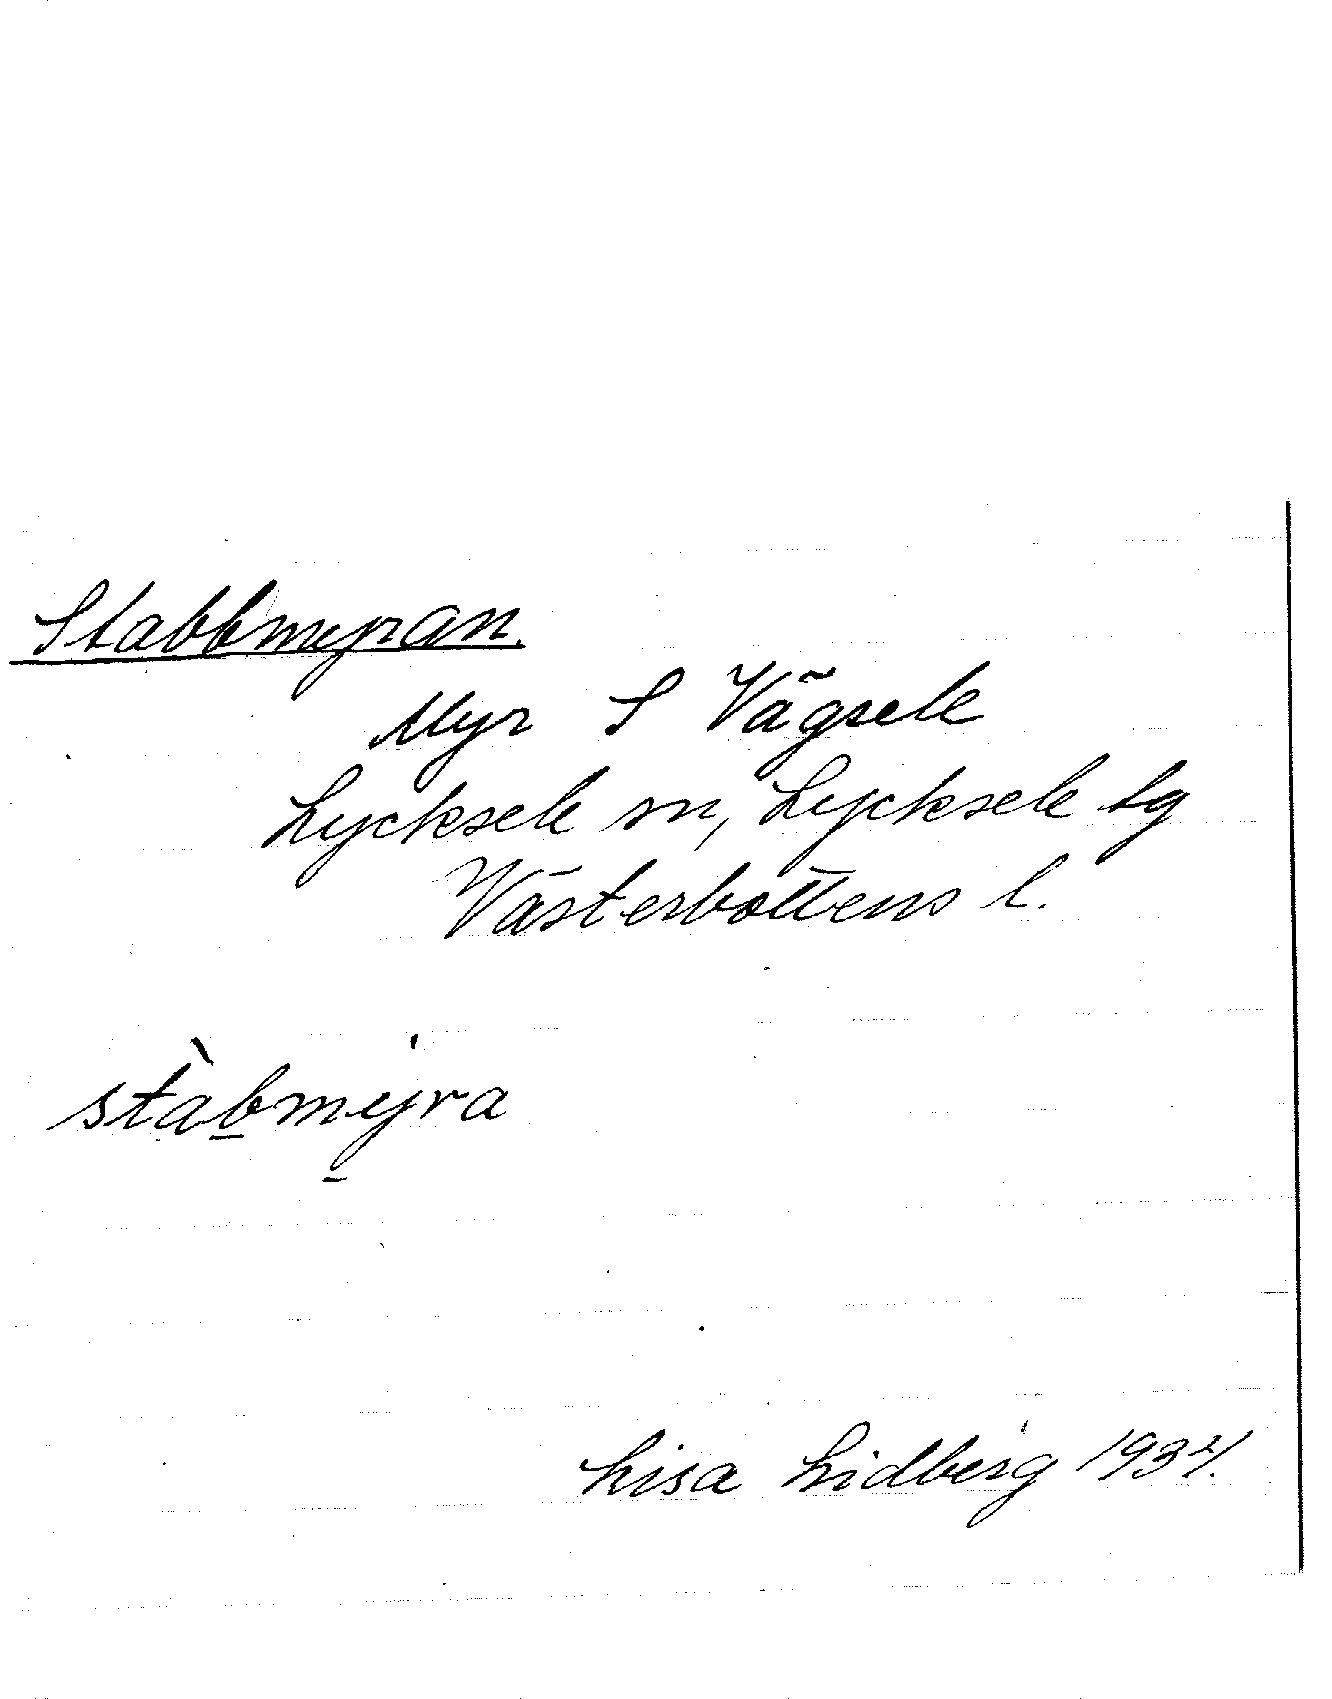 Stabbmyran.
Myr S Vägsele
Lycksele sn, Lycksele tg
Västerbottens l.
stàb̲mỳ̲ra
Lisa Lidberg 1934.